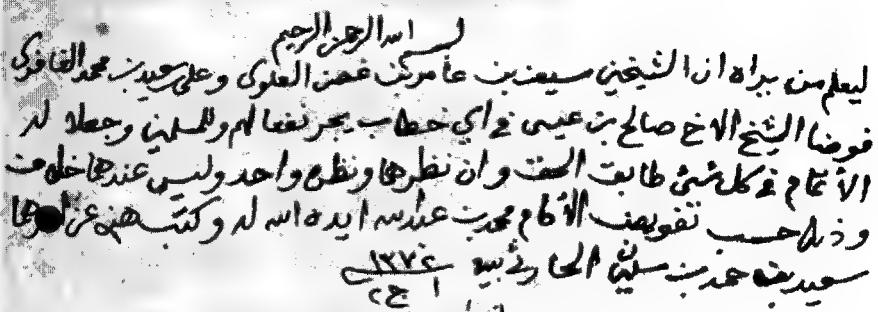 بسم الله الرحمن الرحيم
ليعلم من يراه ان الشيخين سيف بن عامر بن غصن العلوي وعلي بن سعيد بن محمد الغافري
فوضا الشيخ الاخ صالح بن عيسى في اي خطاب يجر نفعا لهم وللمسلمين وجعلا له
الاتمام في كل شيء طابق الحق وان نظرها ونظره واحد وليس عندهما خلاف
وذلك حسب تفويض الامام محمد بن عبدالله ايده الله له وكتب هذا عن امرهما
سعيد بن حمد بن سليمن الحارثي بيده
١٣٧٢